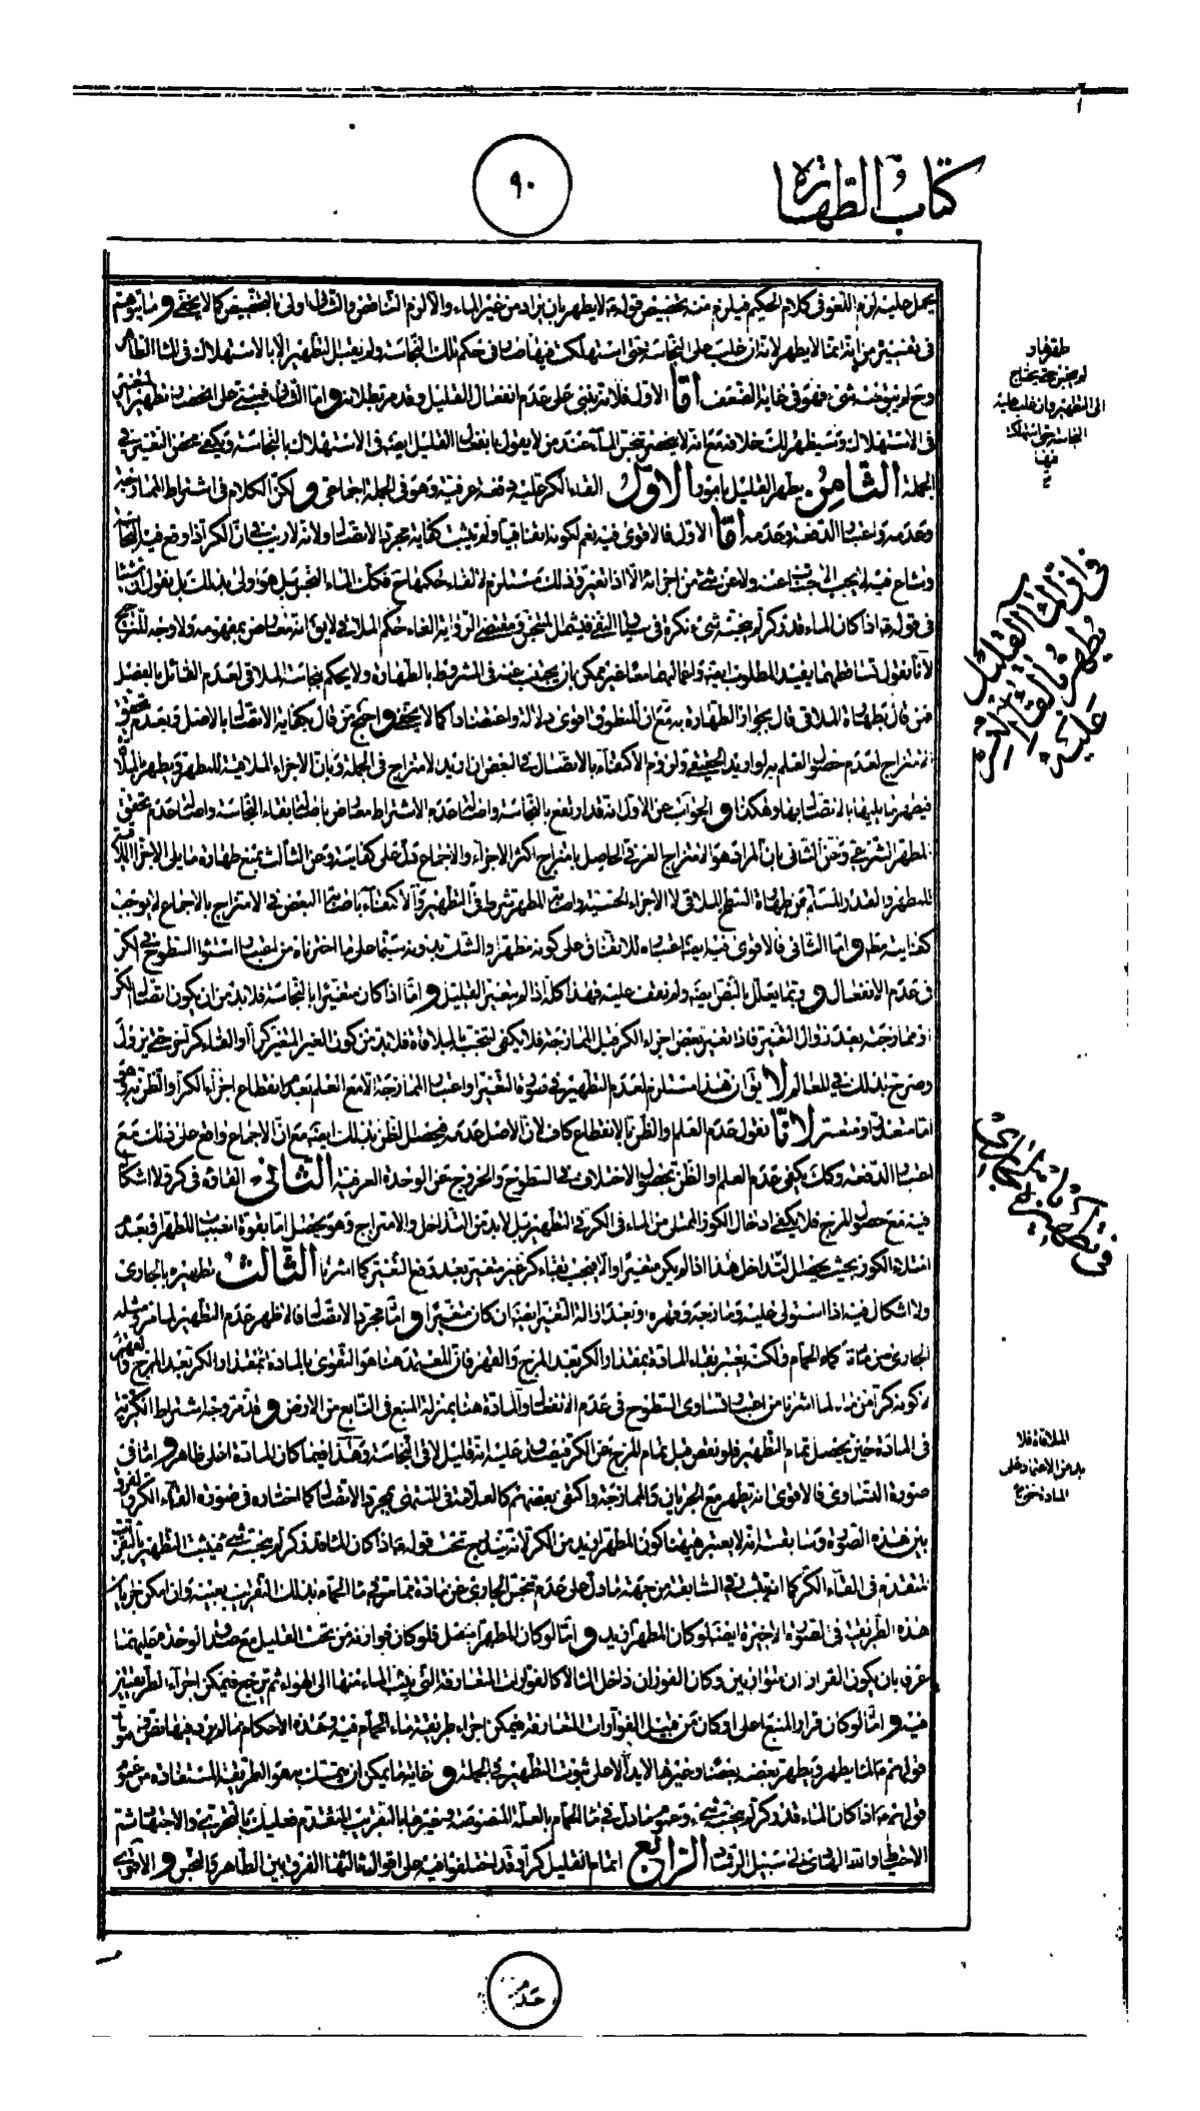 كتاب الطهارة
٩٠
يحمل عليه لزم اللغو في كلام الحكيم فيلزم منه تخصيص قوله لا يطهر بان يراد من غير الماء والا لزم التناقض والثاني اولى بالتخصيص كما لا يخفى و ما يتوهم
في تفسيره من انه انما لا يطهر لانه ان غلب على النجاسة حتى استهلكت فيها صار في حكم تلك النجاسة ولم يقبل التطهير الا بالاستهلاك في الماء الطاهر
وح لم يبق منه شئ فهو في غاية الضعف أما الاول فلانه يبتنى على عدم انفعال القليل وقد مر بطلانه و اما الثاني فيبتنى على
في الاستهلاك وسيظهر لك خلافه مع انه لا ينحصر بنجس الماء عند من لا يقول بانفعال القليل ايضا في الاستهلاك بالنجاسة ويكفى محض التغيير في
الجملة الثامن يطهر القليل بامور الاول القاء الكر عليه دفعة عرفية وهو في الجملة اجماعى و لكن الكلام في اشتراط الممازجة
وعدمه واعتبار الدفعة وعدمه أما الاول فالاقوى فيه نعم لكونه اتفاقيا ولم يثبت كفاية مجرد الاتصال ولانه لا ريب في ان الكر اذا وقع فيه
وشاع فيه لا يجب الاجتناب عنه ولا عن شئ من اجزائه الا اذا تغير وذلك مستلزم لالغاء حكمها ح فكك الماء النجس بل هو اولى بذلك بل نقول
في قوله ع اذا كان الماء قدر كر لم ينجسه شئ نكرة في سياق النفى فيشمل المتنجس ومقتضى الرواية الغاء حكم الملاقى لا يق انه معارض بمفهومه ولا وجه للترجيح
لانا نقول تساقطهما يفيد المطلوب ايضا واعمالهما معا غير ممكن بان يجتنب عنه في المشروط بالطهارة ولا يحكم بنجاسة الملاقى لعدم القائل بالفصل
فمن قال بطهارة الملاقى قال بجواز الطهارة به مع ان المنطوق اقوى دلالة واعتضادا كما لا يخفى و احتج من قال بكفاية الاتصال بالاصل وبعدم تحقق
الامتزاج لعدم حصول العلم به لو اريد الحقيقى ولزوم الاكتفاء بالاتصال في البعض ان اريد الامتزاج في الجملة وبان الاجزاء الملاقية للمطهر يطهر بالملاقاة
فيطهر ما يليها بالاتصال بها وهكذا و الجواب عن الاول انه قد ارتفع بالنجاسة واصالة عدم الاشتراط معارض باصالة بقاء النجاسة واصالة عدم تحقق
المطهر الشرعى وعن الثانى بان المراد هو الامتزاج العرفى الحاصل بامتزاج اكثر الاجزاء والاجماع دل على كفايته وعن الثالث بمنع طهارة ما يلى الاجزاء
للمطهر والقدر المسلم من طهارة السطح الملاقى لا الاجزاء الحسية واتصال المطهر شرط في التطهير والاكتفاء باتصال البعض في الامتزاج بالاجماع لا يوجب
كفايته مطلقا و اما الثانى فالاقوى فيه ايضا اعتباره للاتفاق على كونه مطهرا والشك بدونه سيما على ما اخترناه من اعتبار استواء السطوح في الكر
في عدم الانفعال و ربما يعلل بالنص ايضا ولم نقف عليه فهذا كله اذا لم يتغير القليل و اما اذا كان متغيرا بالنجاسة فلا بد من ان يكون اتصال الكر
او ممازجته بعد زوال التغير فاذا تغير بعض اجزاء الكر قبل الممازجة فلا يكفى لتنجسه بالملاقاة فلا بد من كون الغير المتغير كرا او القاء كر اخر حتى يزول
وصرح بذلك في المعالم لا يق ان هذا مستلزم لعدم التطهير في صورة التغير واعتبار الممازجة الا مع العلم بعدم انقطاع اجزاء الكر او الظن به وهو
اما متعذر او متعسر لانا نقول عدم العلم والظن بالانقطاع كاف لان الاصل عدمه فيحصل الظن بذلك ايضا مع ان الاجماع واقع على ذلك مع
اعتبار الدفعة وكك يكفى عدم العلم او الظن بحصول الاختلاف في السطوح والخروج عن الوحدة العرفية الثانى القاؤه في كر ولا اشكال
فيه مع حصول المزج فلا يكفى ادخال الكوز الممتلى من الماء في الكر في التطهير بل لا بد من التداخل والامتزاج وهو يحصل اما بقوة انصباب المطهر او بعدم
امتلاء الكوز بحيث يحصل التداخل هذا اذا لم يكن متغيرا والا فيجب بقاء كر غير متغير بعد دفع التغير كما اشرنا الثالث تطهيره بالجارى
ولا اشكال فيه اذا استولى عليه ومازجه وقهره وبعد ازالة التغير ايضا ان كان متغيرا و اما مجرد الاتصال فالاظهر عدم التطهير لما مر ومثله
الجارى من مادة كماء الحمام ولكنه يعتبر بقاء المادة بمقدار الكر بعد المزج والقهر فان المعتمد هنا هو التقوى بالمادة بمقدار الكر بعد المزج
لا كونه كرا من ماء لما اشرنا من اعتبار تساوى السطوح في عدم الانفعال والمادة هنا بمنزلة المنبع في النابع من الارض و قد مر وجه اشتراط الكرية
في المادة حين يحصل تمام التطهير فلو نقص قبل تمام المزج عن الكر فيصدق عليه انه قليل لاقى النجاسة وهذا فيما كان المادة اعلى ظاهر و اما في
صورة التساوى فالاقوى انه يطهر مع الجريان والممازجة واكتفى بعضهم كالعلامة في المنتهى بمجرد الاتصال كما اختاره في صورة القاء الكر و الفرق
بين هذه الصورة وسابقتها انه لا يعتبر هيهنا كون المطهر ازيد من الكر لانه يندرج تحت قوله ع اذا كان الماء قدر كر لم ينجسه شئ فيثبت التطهير بالتقريب
المتقدم في القاء الكر كما انه يثبت في السابقة من جهة ما دل على عدم تنجس الجارى عن مادة مما مر في ماء الحمام بذلك التقريب بعينه وان امكن جريان
هذه الطريقة في الصورة الاخيرة ايضا لو كان المطهر ازيد و اما لو كان المطهر اسفل فلو كان فوارة من تحت القليل مع صدق الوحدة عليهما
عرفا بان يكون القراران متوازيين وكان الفوران داخل الماء لا كالفورات المتعارفة التى يثب الماء منها الى الهواء ثم يرجع فيمكن اجراء الطريقتين
فيه و اما لو كان قرار المنبع اعلى او كان من قبيل الفوارات المتعارفة فيمكن اجراء طريقة ماء الحمام فيه وهذه الاحكام مما لم يرد فيها نص
قولهم ع الماء يطهر ويطهر بعضه بعضا وغيرها لا يدل الا على ثبوت التطهير في الجملة و غاية ما يمكن ان يتمسك به هو الطريقة المستفادة من عموم
قولهم ع اذا كان الماء قدر كر لم ينجسه شئ وعموم ما دل في ماء الحمام بالعلة المنصوصة في غيرها بالتقريب المتقدم فعليك بالتحرى والاجتهاد ثم
الاحتياط والله الهادى الى سبيل الرشاد الرابع اتمام القليل كرا وقد اختلفوا فيه على اقوال ثالثها الفرق بين الطاهر والنجس و الاقوى
عدم
الى التطهير وان غلب عليه
النجاسة حتى استهلكت
فيها
في ان الماء القليل
يطهر بالقاء الكر
عليه
في تطهير الماء بالجارى
الملاقاة فلا
بد من الاعتماد على
المادة